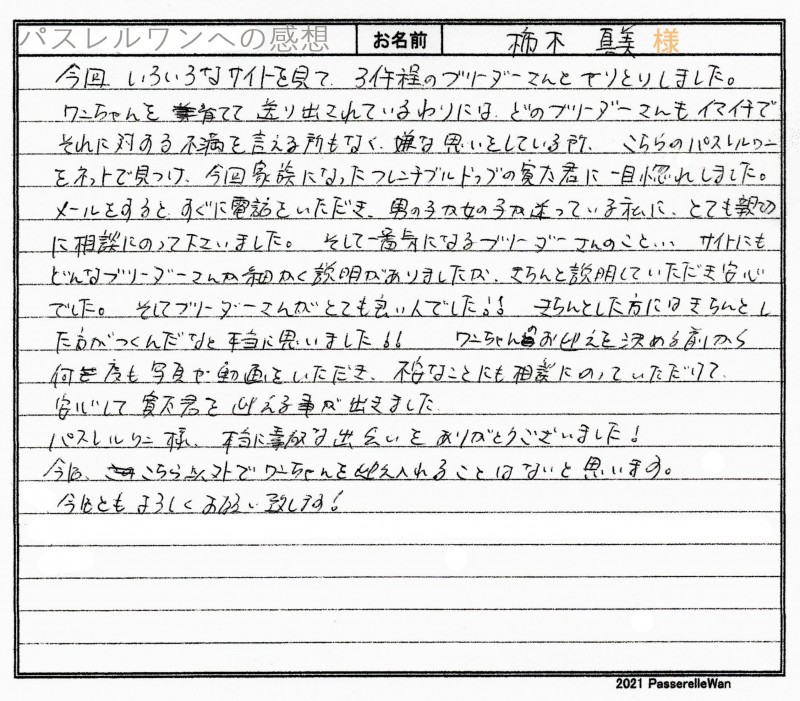 パスレルワンへの感想 お名前 柿木 真美 様
今回 いろいろなサイトを見て、3件程のブリーダーさんとやりとりしました。
ワンちゃんを育てて 送り出されているわりには、どのブリーダーさんもイマイチで
それに対する不満を言える所もなく、嫌な思いをしている所、こちらのパスレルワン
をネットで見つけ、今回家族になったフレンチブルドッグの寅太君に一目惚れしました。
メールをすると すぐに電話をいただき、男の子か女の子か迷っている私に、とても親切
に相談にのって下さいました。 そして一番気になるブリーダーさんのこと… サイトにも
どんなブリーダーさんか細かく説明がありましたが、きちんと説明していただき安心
でした。 そしてブリーダーさんがとても良い人でした!! きちんとした方にはきちんとし
た方がつくんだなと本当に思いました!! ワンちゃんのお迎えを決める前から
何度も写真や動画をいただき、不安なことにも相談にのっていただけて、
安心して寅太君を迎える事が出きました
パスレルワン様、本当に素敵な出会いをありがとうございました!
今後、こちら以外でワンちゃんを迎え入れることはないと思います。
今後ともよろしくお願い致します!
2021 PasserelleWan